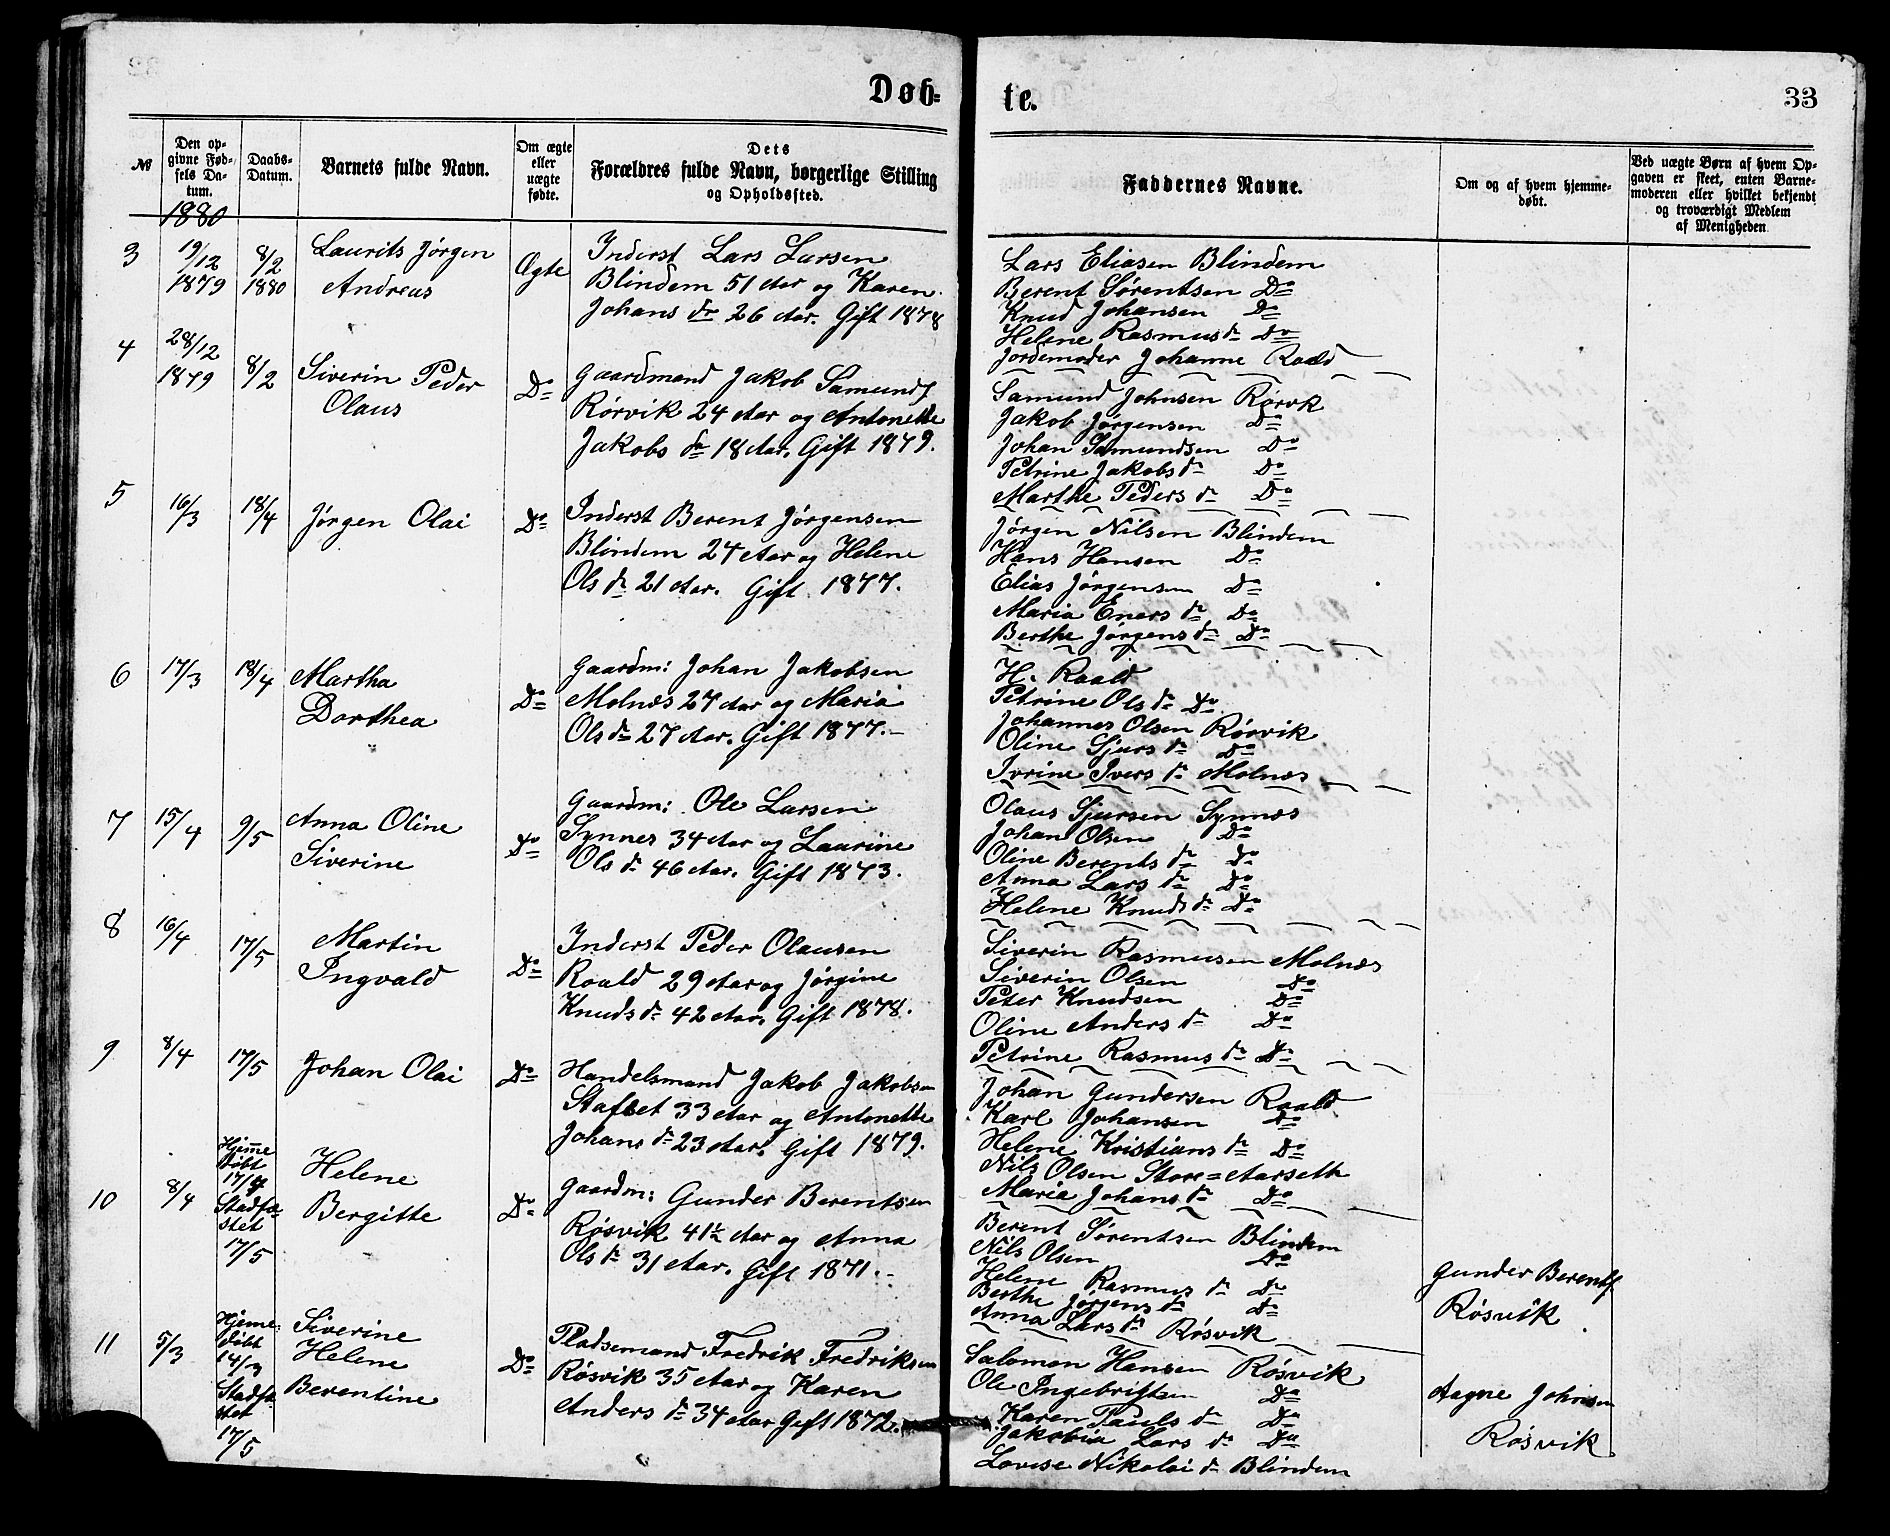 Døb=
te.
33
№
Den op-
givne Fød-
sels Da-
tum.
Daabs-
Datum.
Barnets fulde Navn.
Om ægte
eller
uægte
fødte.
Dets
Forældres fulde Navn, borgerlige Stilling
og Opholdssted.
Faddernes Navne.
Om og af hvem hjemme-
døbt.
Ved uægte Børn af hvem Op-
gaven er skeet, enten Barne-
moderen eller hvilket bekjendt
og troværdigt Medlem
af Menigheden
1880
3
19/12
1879
8/2
1880
Laurits Jørgen
Andreas
Ægte
Inderst Lars Larsen
Blindem 51 Aar og Karen
Johans dr 26 Aar. Gift 1878
Lars Eliasen Blindem
Berent Sørentsen Do
Knud Johansen Do
Helene Rasmus dr Do
Jordemoder Johanne Raald
4
28/12
1879
8/2
Siverin Peder
Olaus
Do
Gaardmand Jakob Samunds
Rørvik 24 Aar og Antonette
Jakobs dr 18 Aar. Gift 1879.
Samund Johnsen Rørvk
Jakob Jørgensen Do
Johan Samundsen Do
Petrine Jakobs dr Do
Marthe Peders dr Do
5
16/3
18/4
Jørgen Olai
Do
Inderst Berent Jørgensen
Blindem 24 Aar og Helene
Ols dr 21 Aar. Gift 1877.
Jørgen Nilsen Blindem
Hans Hansen Do
Elias Jørgensen Do
Maria Eners dr Do
Berthe Jørgens dr Do
6
17/3
18/4
Martha
Dorthea
Do
Gaardm: Johan Jakobsen
Molnæs 27 Aar og Maria
Ols dr 27 Aar. Gift 1877.-
H. Roald
Petrine Ols dr Do
Johannes Olsen Rørvik
Oline Sjurs dr Do
Ivrine Ivers dr Molnæs
7
15/4
9/5
Anna Oline
Siverine
Do
Gaardm: Ole Larsen
Synnes 34 Aar og Laurine
Ols dr 46 Aar. Gift 1873.
Olaus Sjursen Synnæs
Johan Olsen Do
Oline Berents dr Do
Anna Lars dr Do
Helene Knuds dr Do
8
16/4
17/5
Martin
Ingvald
Do
Inderst Peder Olausen
Roald 29 Aar og Jørgine
Knuds dr 42 Aar. Gift 1878.
Siverin Rasmusen Molnæs
Siverin Olsen Do
Peter Knudsen Do
Oline Anders dr Do
Petrine Rasmus dr Do
9
8/4
17/5
Johan Olai
Do
Handelsmand Jakob Jakobsen
Stafset 33 Aar og Antonette
Johans dr 23 Aar. Gift 1879.
Johan Gundersen Roald
Karl Johansen Do
Helene Kristians dr Do
Nils Olsen Store=Aarseth
Maria Johans dr Do
10
8/4
Hjemme
døbt
17/4
Stadfæ-
stet
17/5
Helene
Bergitte
Do
Gaardm: Gunder Berentsen
Røsvik 41½ Aar og Anna
Ols dr 31 Aar. Gift 1871.-
Berent Sørentsen Blindem
Nils Olsen Do
Helene Rasmus dr Do
Berthe Jørgens dr Do
Anna Lars dr Røsvik
Gunder Berents
Røsvik
11
5/3
Hjemme-
døbt
14/3
Stadfæ
stet
17/5
Siverine
Helene
Berentine
Do
Pladsemand Fredrik Fredriksen
Røsvik 35 Aar og Karen
Anders dr 34 Aar Gift 1872.
Salomon Hansen Røsvik
Ole Ingebrigtsen Do
Karen Pauls dr Do
Jakobia Lars dr Do
Lovise Nikolai dr Blindem
Aagne Johnsen
Røsvik